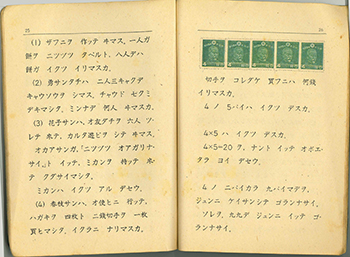 (1) ザワニヲ 作ッテ ヰマス、一人ガ
餅ヲ ニツヅツ タベルト、八人デハ
餅ガ イクツ イリマスカ。
(2) 勇サンタチハ 二人三キャクデ
キャウソウヲ シマス。チャウド 七クミ
デキマシタ。ミンナデ 何人 ヰマスカ。
(3) 花子サンハ、オ友ダチヲ 六人 ツ
レテ 来テ、カルタ遊ビヲ シテ ヰマス。
オカアサンガ、「ニツヅツ オアガリナ
サイ。」ト イッテ、ミカンヲ 持ッテ 来
テ クダサイマシタ。
ミカンハ イクツ アル デセウ。
(4) 春枝サンハ、オ使ヒニ 行ッテ、
ハガキヲ 四枚ト 二銭切手ヲ 一枚
買ヒマシタ。イクラニ ナリマスカ。
切手ヲ コレダケ 買フニハ 何銭
イリマスカ。
4 ノ 5バイハ イクツ デスカ。
4×5 ハ イクツ デスカ。
4×5=20 ヲ、ナント イッテ オボエ
タラ ヨイ デセウ。
4 ノ ニバイカラ 九バイマデヲ、
ジュンニ ケイサンシテ ゴランナサイ。
ソレヲ、九九デ ジュンニ イッテ ゴ
ランナサイ。